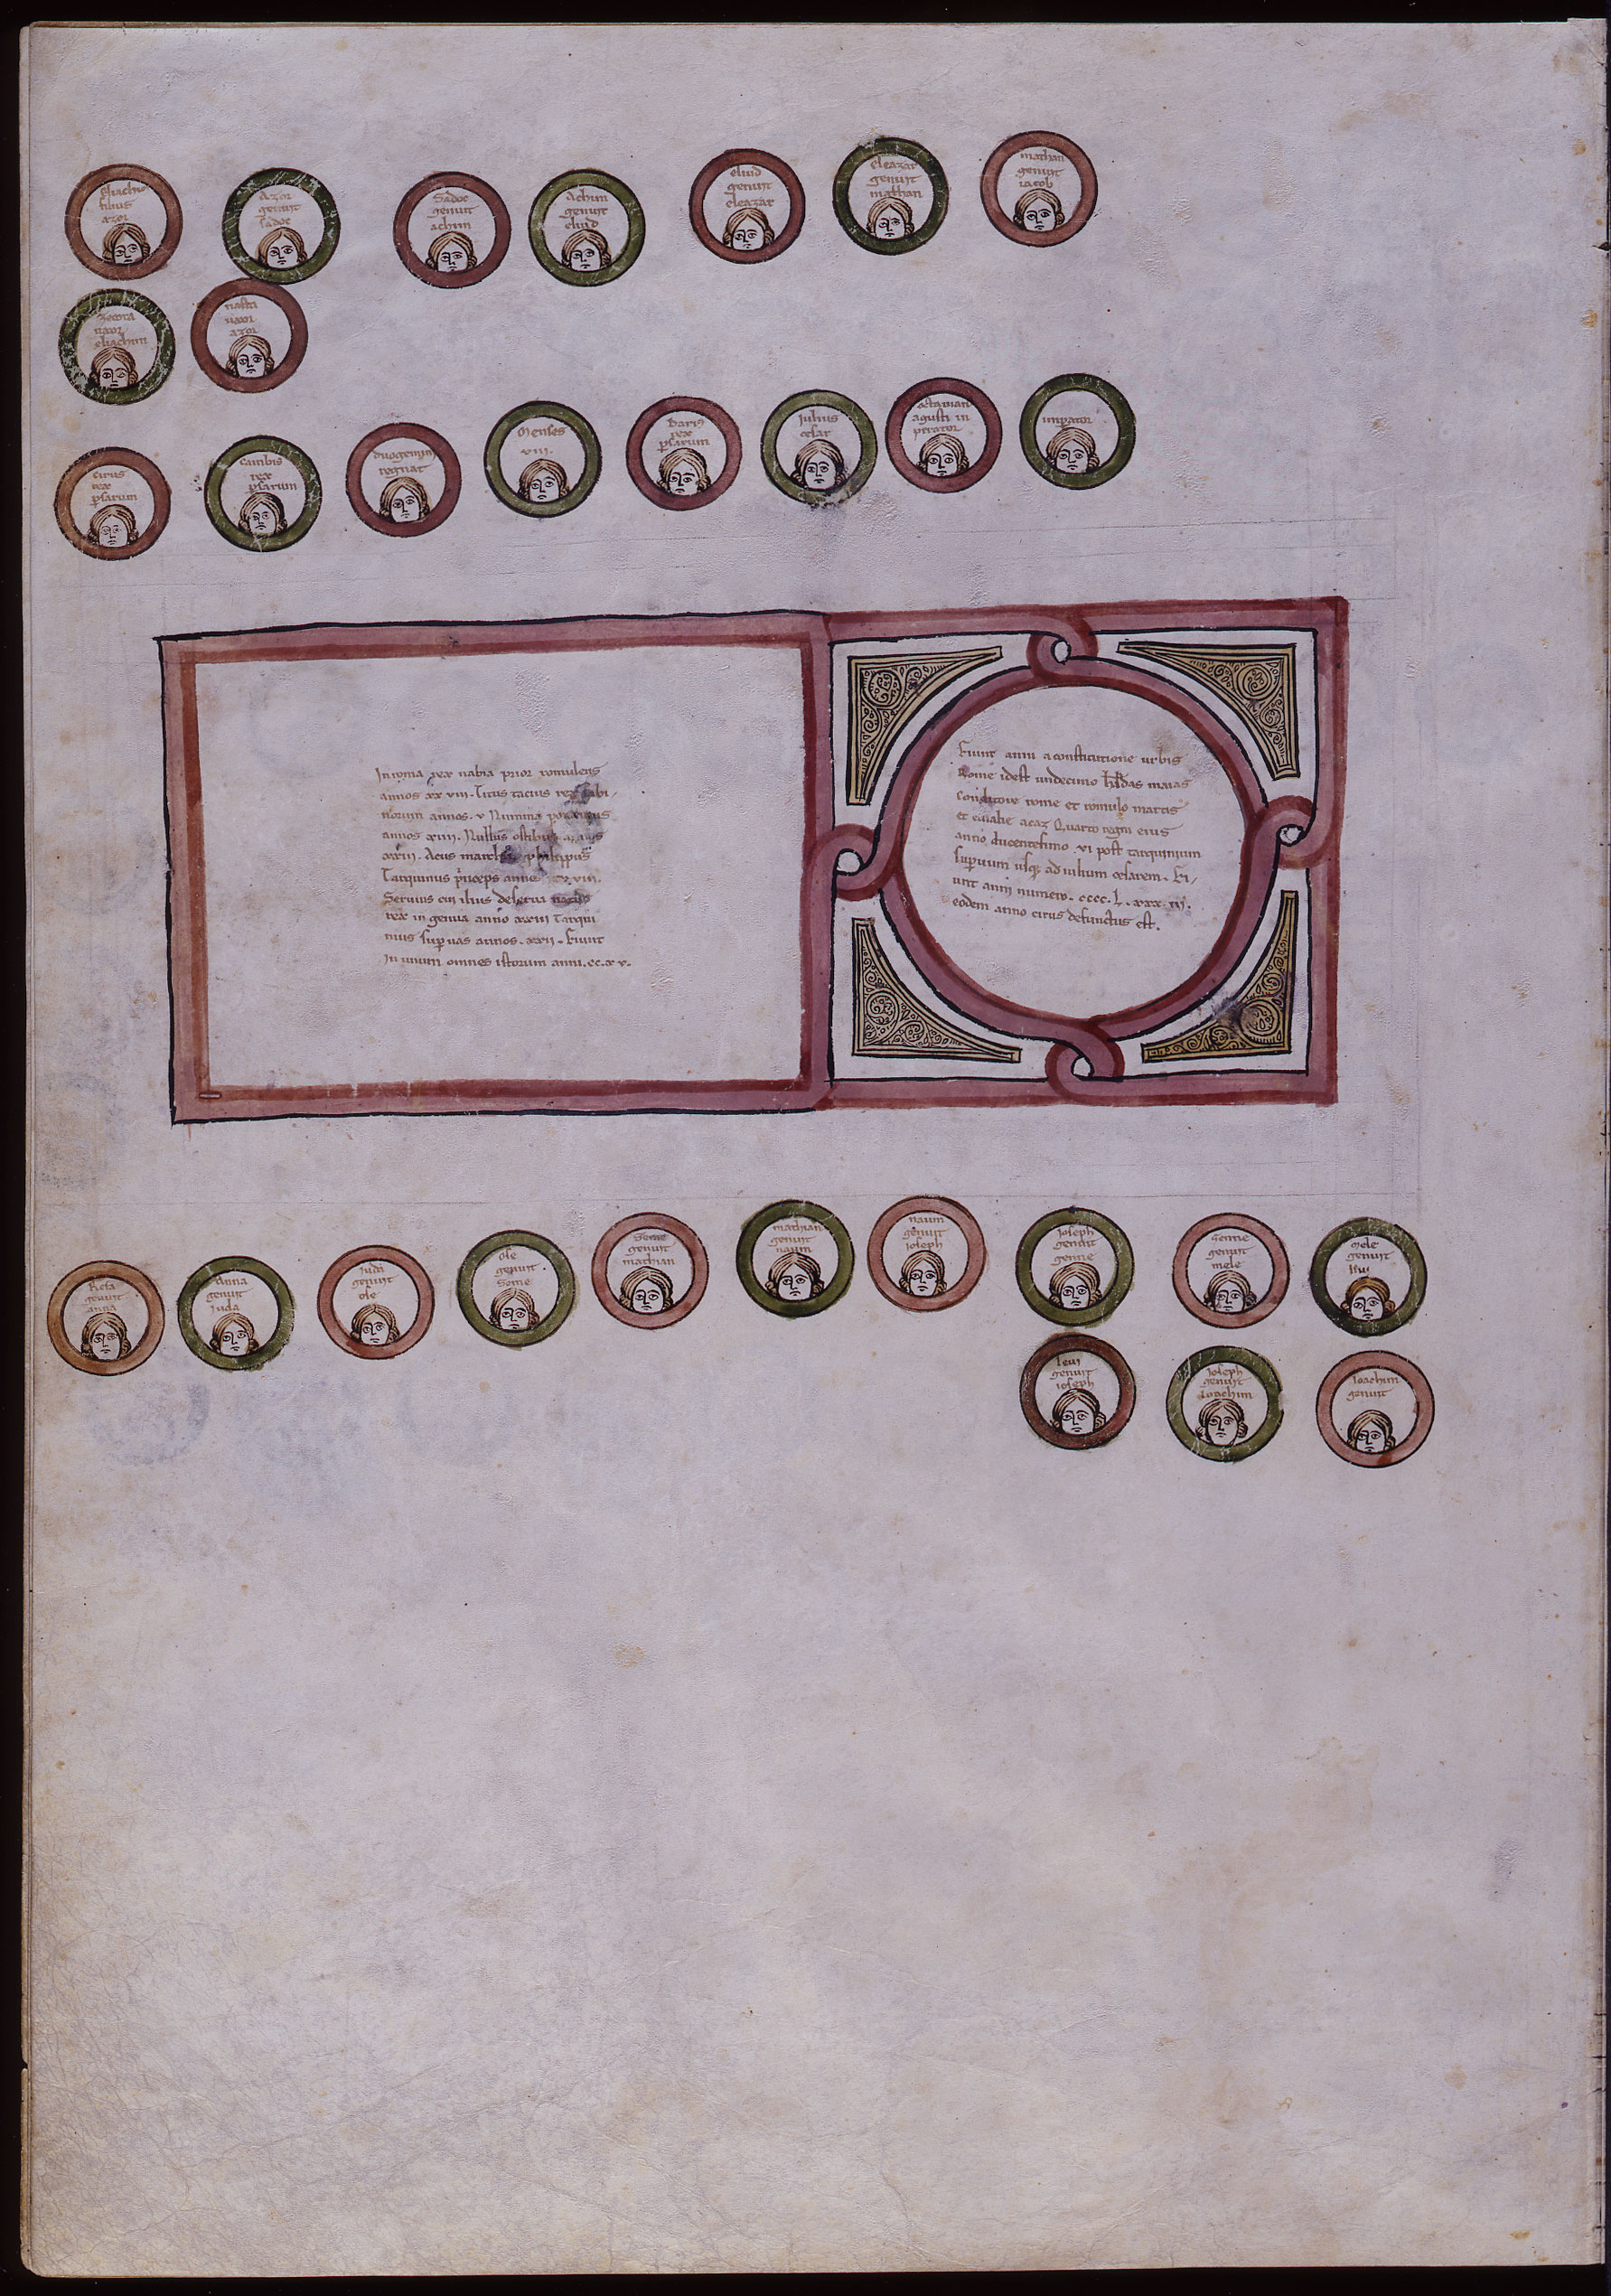 eliachim
filius
azor
Azor
genuit
sadoc
Sadoc
genuit
achim
Achim
genuit
eliud
eliud
genuit
eleazar
eleazar
genuit
mathan
mathan
genuit
iacob
uxor
eliachim
uxor
azor
cirus
rex
psarum
cambis
rex
psarum
duogemini
regnat
Menses
viii.
Daris
rex
psarum
Iulius
cesar
agusti in
perator
inpator
In roma rex prior romulens
annos xx viii. Titus tacius rex sabi
norum annos. v Numma
annos xiiii. Nullus ostibus
xxiii. Acus philippus
Tarquinus princeps anno
Seruius cui ilius deserua
rex in genua anno xxxiii Tarqui
nius supuas annos. xxii. Fiunt
In unum omnes istorum anni. cc. x v.
Fiunt anni a constitutione urbis
Rome idest undecimo kldas maias
conditore rome et romulo martis
et acaz Quarto regni eius
anno ducentesimo. vi post tarquinium
supuum usq; ad iulium cesarem. Fi
unt anni numero. cccc. L. xxx. iii.
eodem anno cirus defunctus est.
Resa
genuit
anna
Anna
genuit
iuda
iuda
genuit
ole
ole
genuit.
Some
Seme
genuit
mathian
mathian
genuit
naum
naum
genuit
ioseph
ioseph
genuit
genne
genne
genuit
mele
Mele
genuit
leui
genuit
ioseph
ioseph
genuit
ioachim
ioachim
genuit